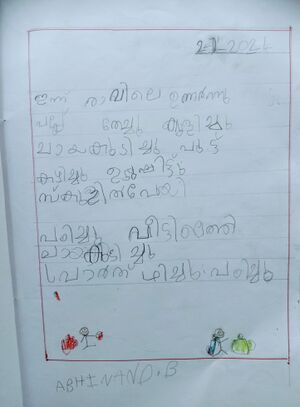 2-1-2024
ഇന്ന് രാവിലെ ഉണർന്നു
പല്ല് തേച്ചു കുളിച്ചു
ചായകുടിച്ചു പുട്ട്
കഴിച്ചു ഉടുപ്പിട്ടു
സ്കൂളിൽപോയി
പഠിച്ചു വീട്ടിലെത്തി
ചായകുടിച്ചു
പ്രാർത്ഥിച്ചു പഠിച്ചു
ABHINAND.B